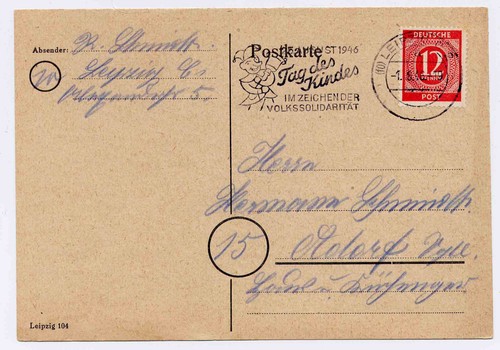 Absender: R. Schmidt
Leipzig C 1
10
5
Postkarte
ST 1946
Tag des
Kindes
IM ZEICHEN DER
VOLKSSOLIDARITÄT
(10) LEI
-1.
DEUTSCHE
12
POST
Herrn
Hermann Schmidt
15
Adorf
u.
Leipzig 104